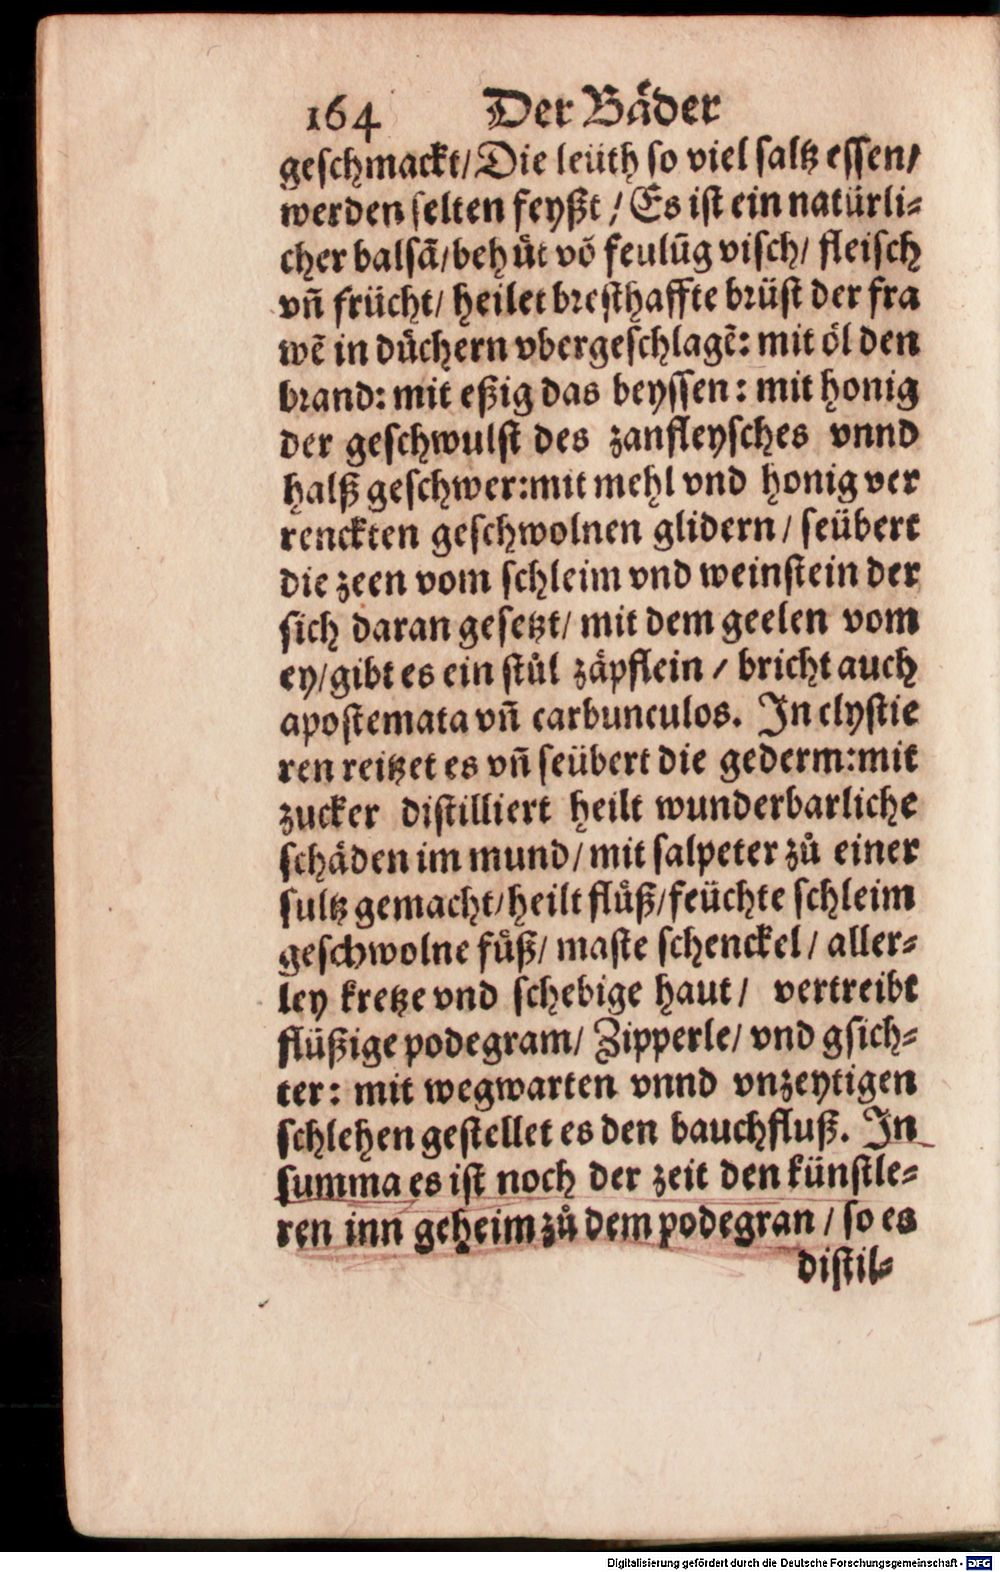 164 Der Båder
geschmackt/ Die leüth so viel saltz essen/
werden selten feyßt / Es ist ein natürli⸗
cher balsã/ behůt võ feulũg visch/ fleisch
vñ frücht/ heilet bresthaffte brüst der fra
wẽ in důchern vbergeschlagẽ: mit öl den
brand: mit eßig das beyssen: mit honig
der geschwulst des zanfleysches vnnd
halß geschwer: mit mehl vnd honig ver
renckten geschwolnen glidern / seübert
die zeen vom schleim vnd weinstein der
sich daran gesetzt/ mit dem geelen vom
ey/ gibt es ein stůl zäpflein / bricht auch
apostemata vñ carbunculos. In clystie
ren reitzet es vñ seübert die gederm: mit
zucker distilliert heilt wunderbarliche
schäden im mund/ mit salpeter zů einer
sultz gemacht/ heilt flůß/ feüchte schleim
geschwolne fůß/ maste schenckel / aller⸗
ley kretze vnd schebige haut / vertreibt
flüßige podegram/ Zipperle/ vnd gsich⸗
ter: mit wegwarten vnnd vnzeytigen
schlehen gestellet es den bauchfluß. In
summa es ist noch der zeit den künstle⸗
ren inn geheim zů dem podegran / so es
distil⸗
Digitalisierung gefördert durch die Deutsche Forschungsgemeinschaft - DFG